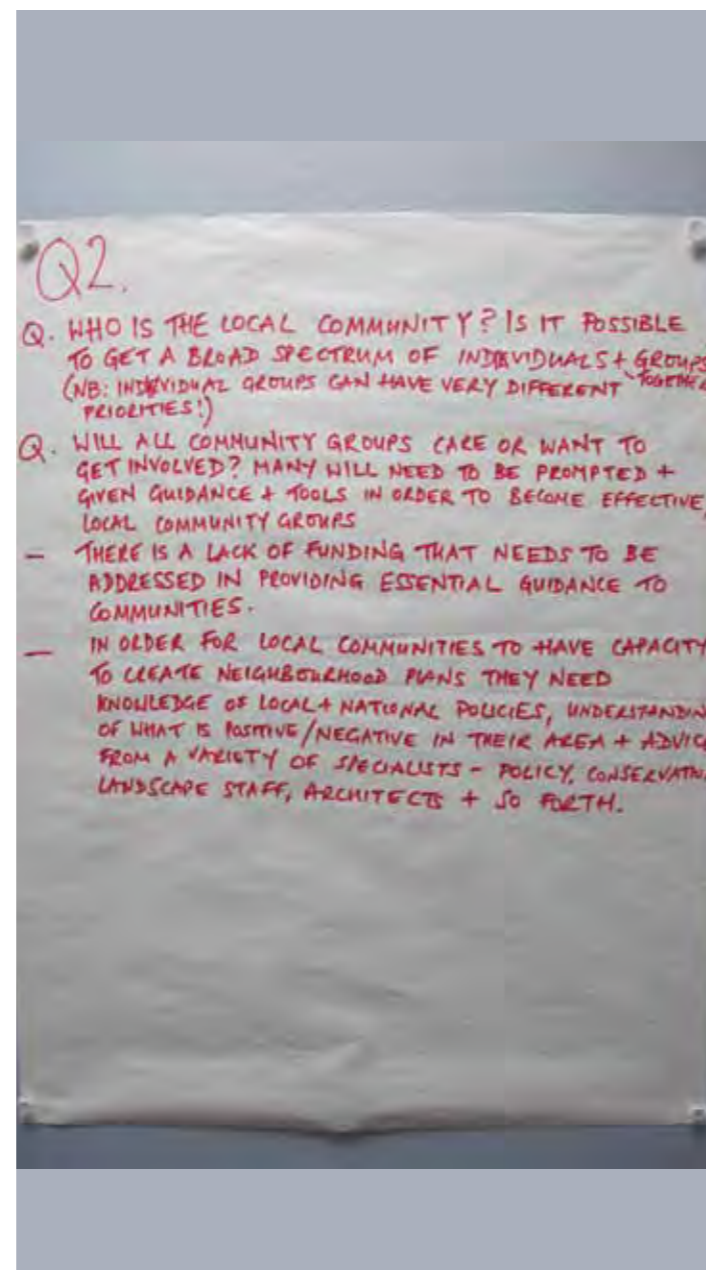 Q2.
Q. WHO IS THE LOCAL COMMUNITY? IS IT POSSIBLE
TO GET A BROAD SPECTRUM OF INDIVIDUALS + GROUPS
TOGETHE
(NB: INDIVIDUAL GROUPS CAN HAVE VERY DIFFERENT
PRIORITIES!)
Q. WILL ALL COMMUNITY GROUPS CARE OR WANT TO
GET INVOLVED? MANY WILL NEED TO BE PROMPTED +
GIVEN GUIDANCE + TOOLS IN ORDER TO BECOME EFFECTIVE,
LOCAL COMMUNITY GROUPS
- THERE IS A LACK OF FUNDING THAT NEEDS TO BE
ADDRESSED IN PROVIDING ESSENTIAL GUIDANCE TO
COMMUNITIES.
- IN ORDER FOR LOCAL COMMUNITIES TO HAVE CAPACITY
TO CREATE NEIGHBOURHOOD PLANS THEY NEED
KNOWLEDGE OF LOCAL + NATIONAL POLICIES, UNDERSTANDIN
OF WHAT IS POSITIVE/NEGATIVE IN THEIR AREA + ADVIC
FROM A VARIETY OF SPECIALISTS - POLICY, CONSERVATN
LANDSCAPE STAFF, ARCHITECTS + SO FORTH.